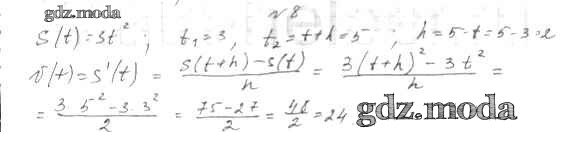 gdz.moda
№ 8
S(t)=3t² ; t₁=3, t₂=t+h=5 ; h=5-t=5-3=2
v(t)=s'(t) = (s(t+h)-s(t))/h = (3(t+h)²-3t²)/h =
= (3·5²-3·3²)/2 = (75-27)/2 = 48/2 = 24
gdz.moda